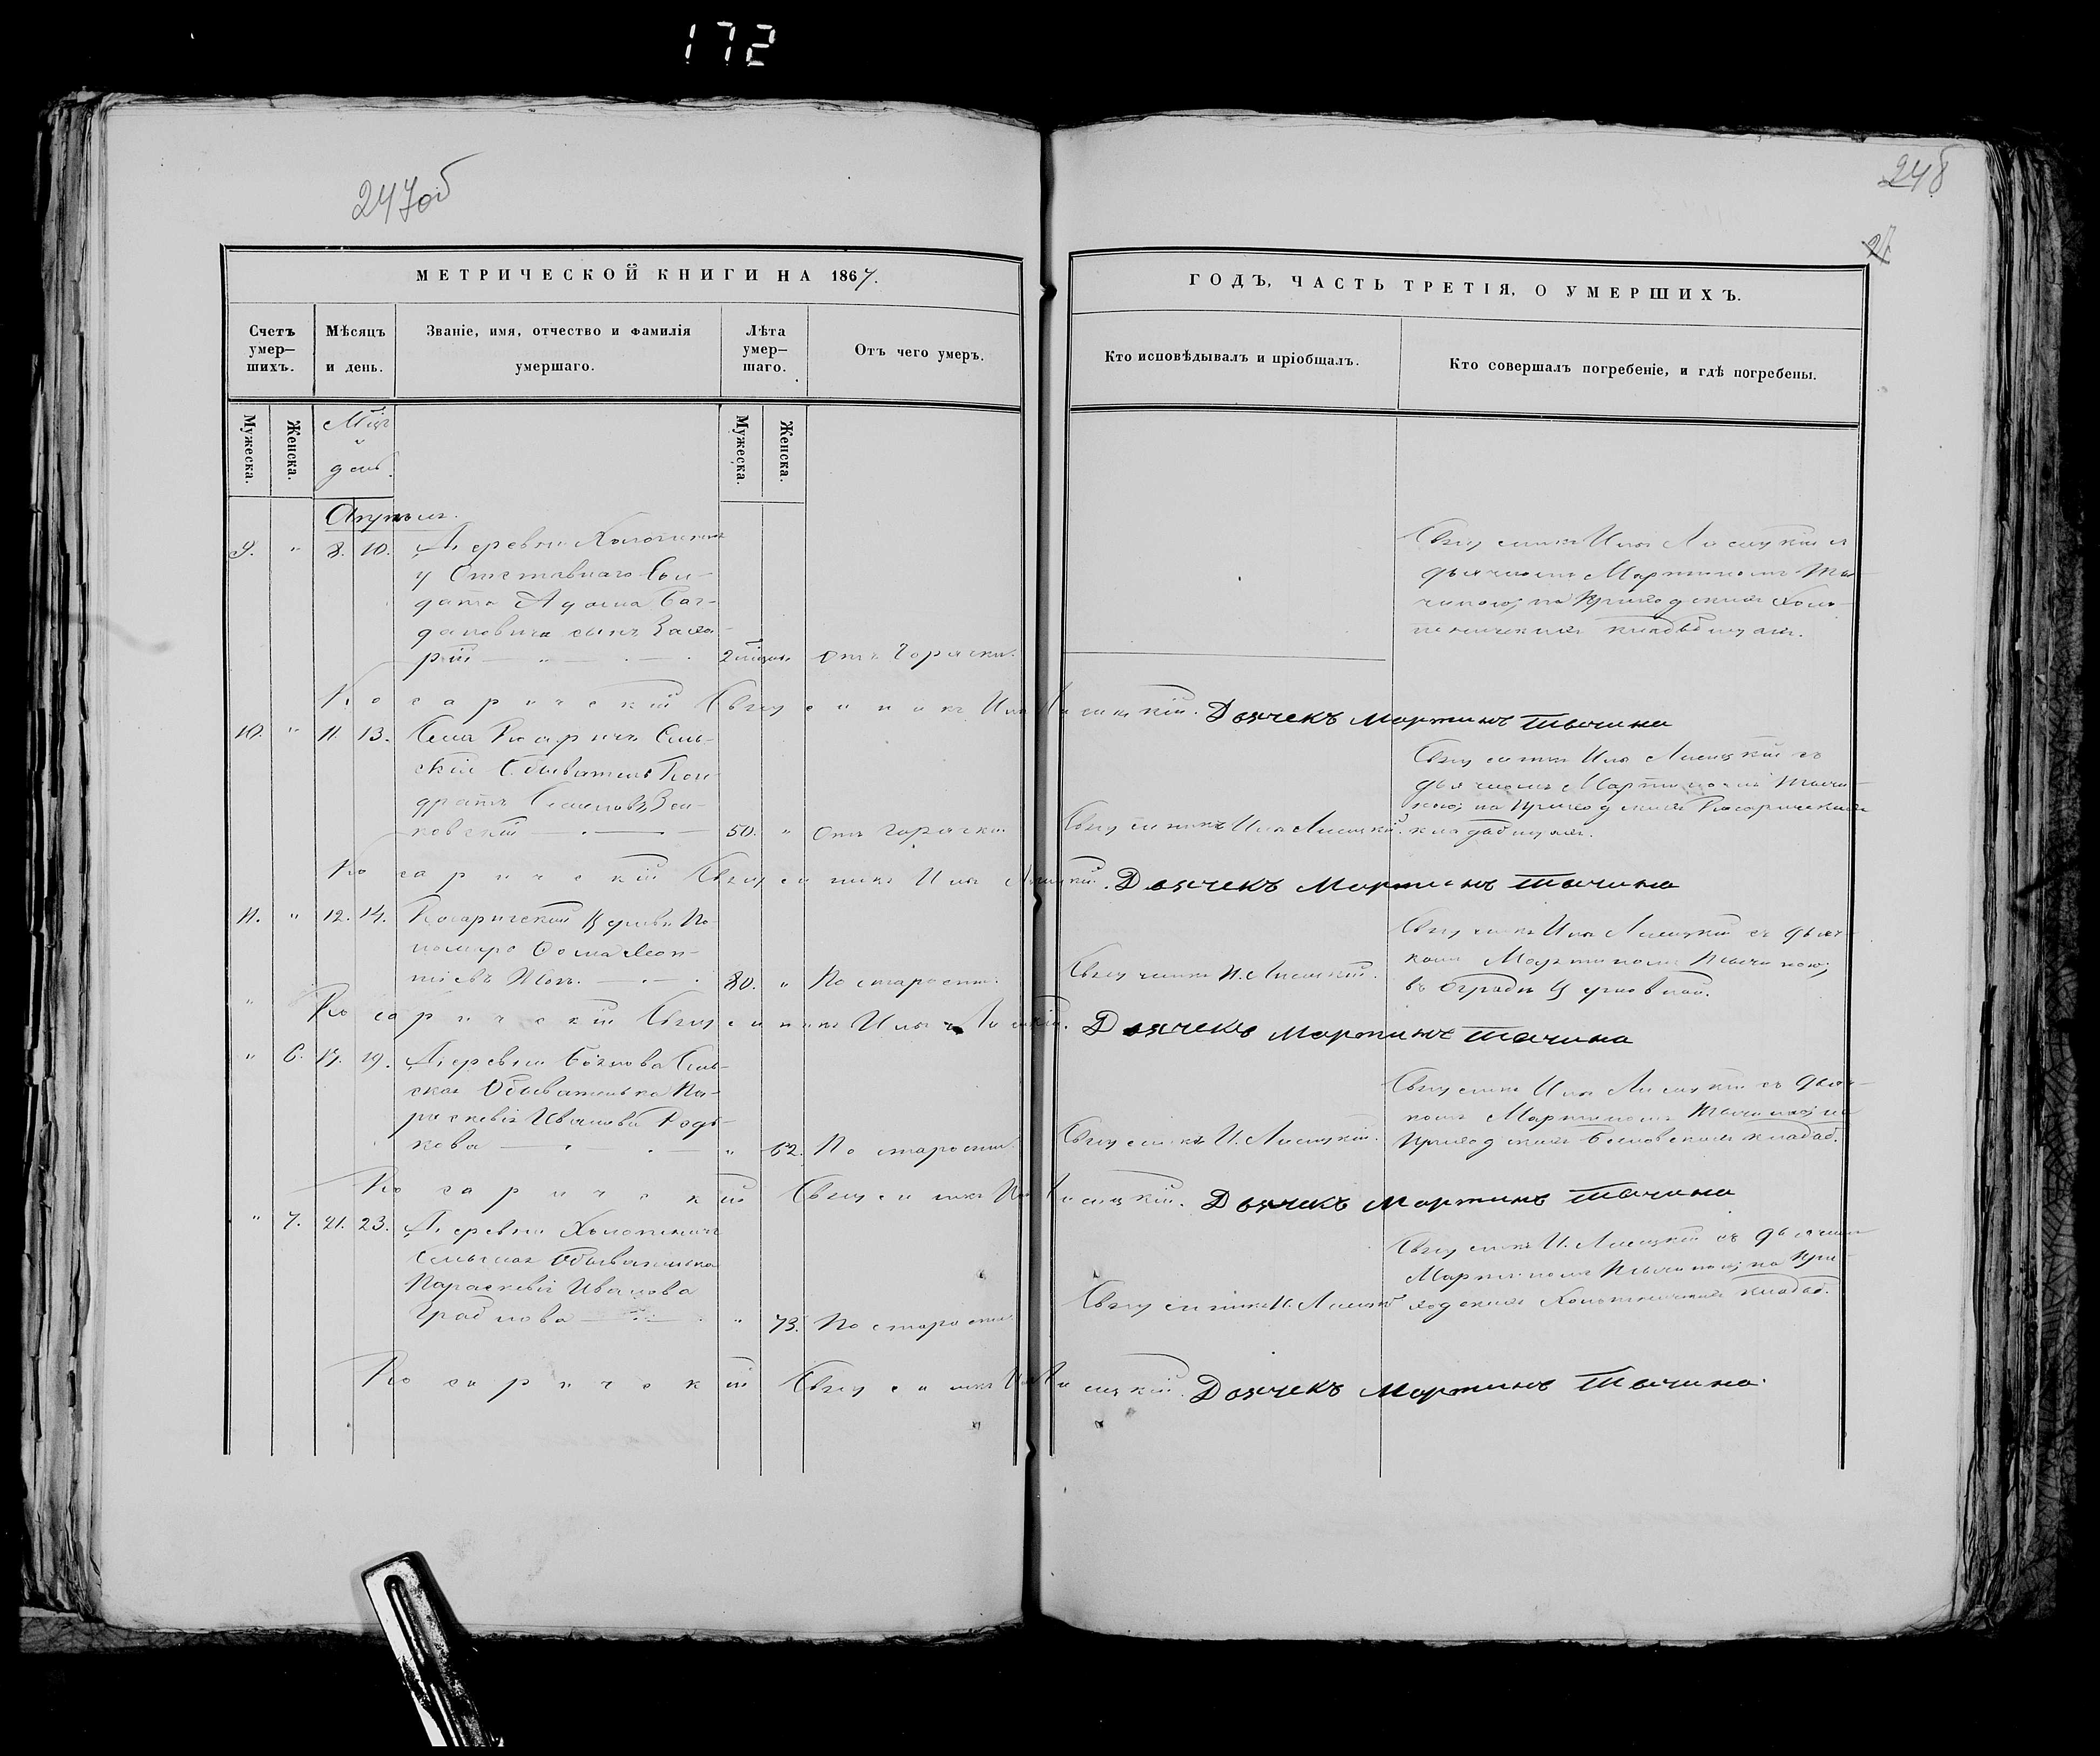 172
247об
248
МЕТРИЧЕСКОЙ КНИГИ НА 1867.
Счетъ умер–шихъ.
Мѣсяцъ и день.
Званіе, имя, отчество и фамилія умершаго.
Лѣта умер–шаго.
Отъ чего умеръ.
Мужеска.
Женска.
день.
Мужеска.
Женска.
ГОДЪ, ЧАСТЬ ТРЕТІЯ, О УМЕРШИХЪ.
Кто исповѣдывалъ и пріобщалъ.
Кто совершалъ погребеніе, и гдѣ погребены.
9. " 8. 10. Деревни
у Отставнаго Сол-
дата Адама Бог-
дановича сынъ Заха-
рій
Отъ горячки.
Священникъ Илья Лисицкій съ
дьячкомъ Мартиномъ Ты-
чиною; на Приходскихъ Холо-
пеничскихъ кладбищахъ.
Косаричскій Священникъ Илья Лисицкій. Дьячекъ Мартинъ Тычина
10. " 11. 13. Села Косаричъ Сель-
скій Обыватель Кон-
дратъ
ковскій 50. " Отъ горячки
Священникъ Илья Лисицкій.
Священникъ Илья Лисицкій съ
дьячкомъ Мартиномъ Тычи-
ною; на Приходскихъ Косаричскихъ
кладбищахъ.
Косаричскій Священникъ Илья Лисицкій. Дьячекъ Мартинъ Тычина
11. " 12. 14. Косаричской Церкви По-
номарь Фома Леон-
тіевъ 80. " По старости.
Священникъ И. Лисицкій.
Священникъ Илья Лисицкій съ дьяч-
комъ Мартиномъ Тычиною;
въ оградѣ Церковной.
Косаричскій Священникъ Илья Лисицкій. Дьячекъ Мартинъ Тычина
" 6. 17. 19. Деревни Сель-
ская Обывателька Па-
раскевія Иванова Родь-
кова " 62. По старости
Священникъ И. Лисицкій.
Священникъ Илья Лисицкій съ дьяч-
комъ Мартиномъ Тычиною; на
Приходскихъ кладбищ.
Косаричскій Священникъ Илья Лисицкій. Дьячекъ Мартинъ Тычина
" 7. 21. 23. Деревни Холопеничъ
Сельская Обывателька
Параскевія Иванова
" 73. По старости.
Священникъ И. Лисицкій
Священникъ И. Лисицкій съ дьячкомъ
Мартиномъ Тычиною; на При-
ходскихъ Холопеничскихъ кладбищ.
Косаричскій Священникъ Илья Лисицкій. Дьячекъ Мартинъ Тычина.